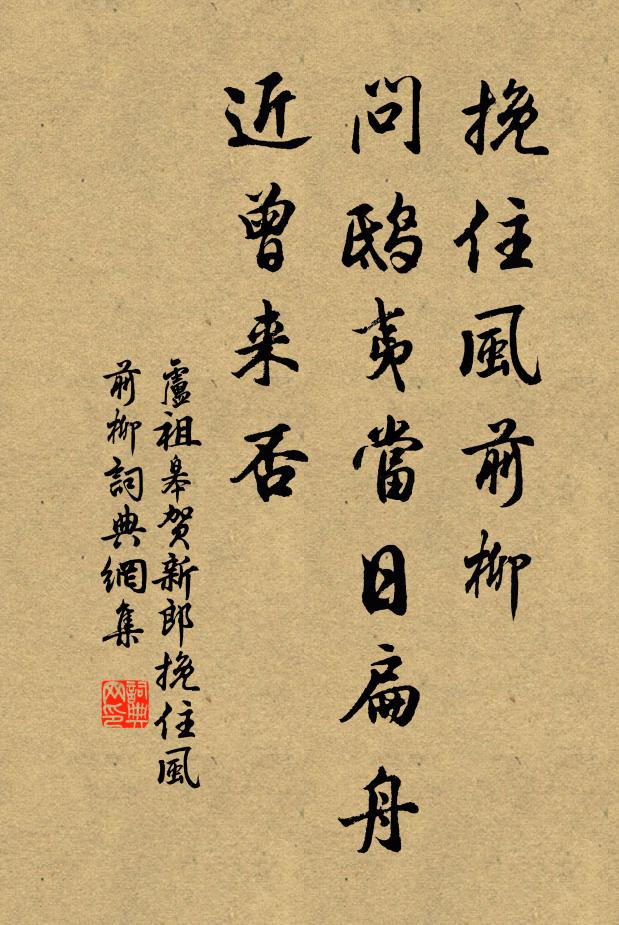 挽住風前柳
問鴟夷當日扁舟
近曾来否
盧祖皋賀新郎挽住風
前柳詞典網集
詞典网印